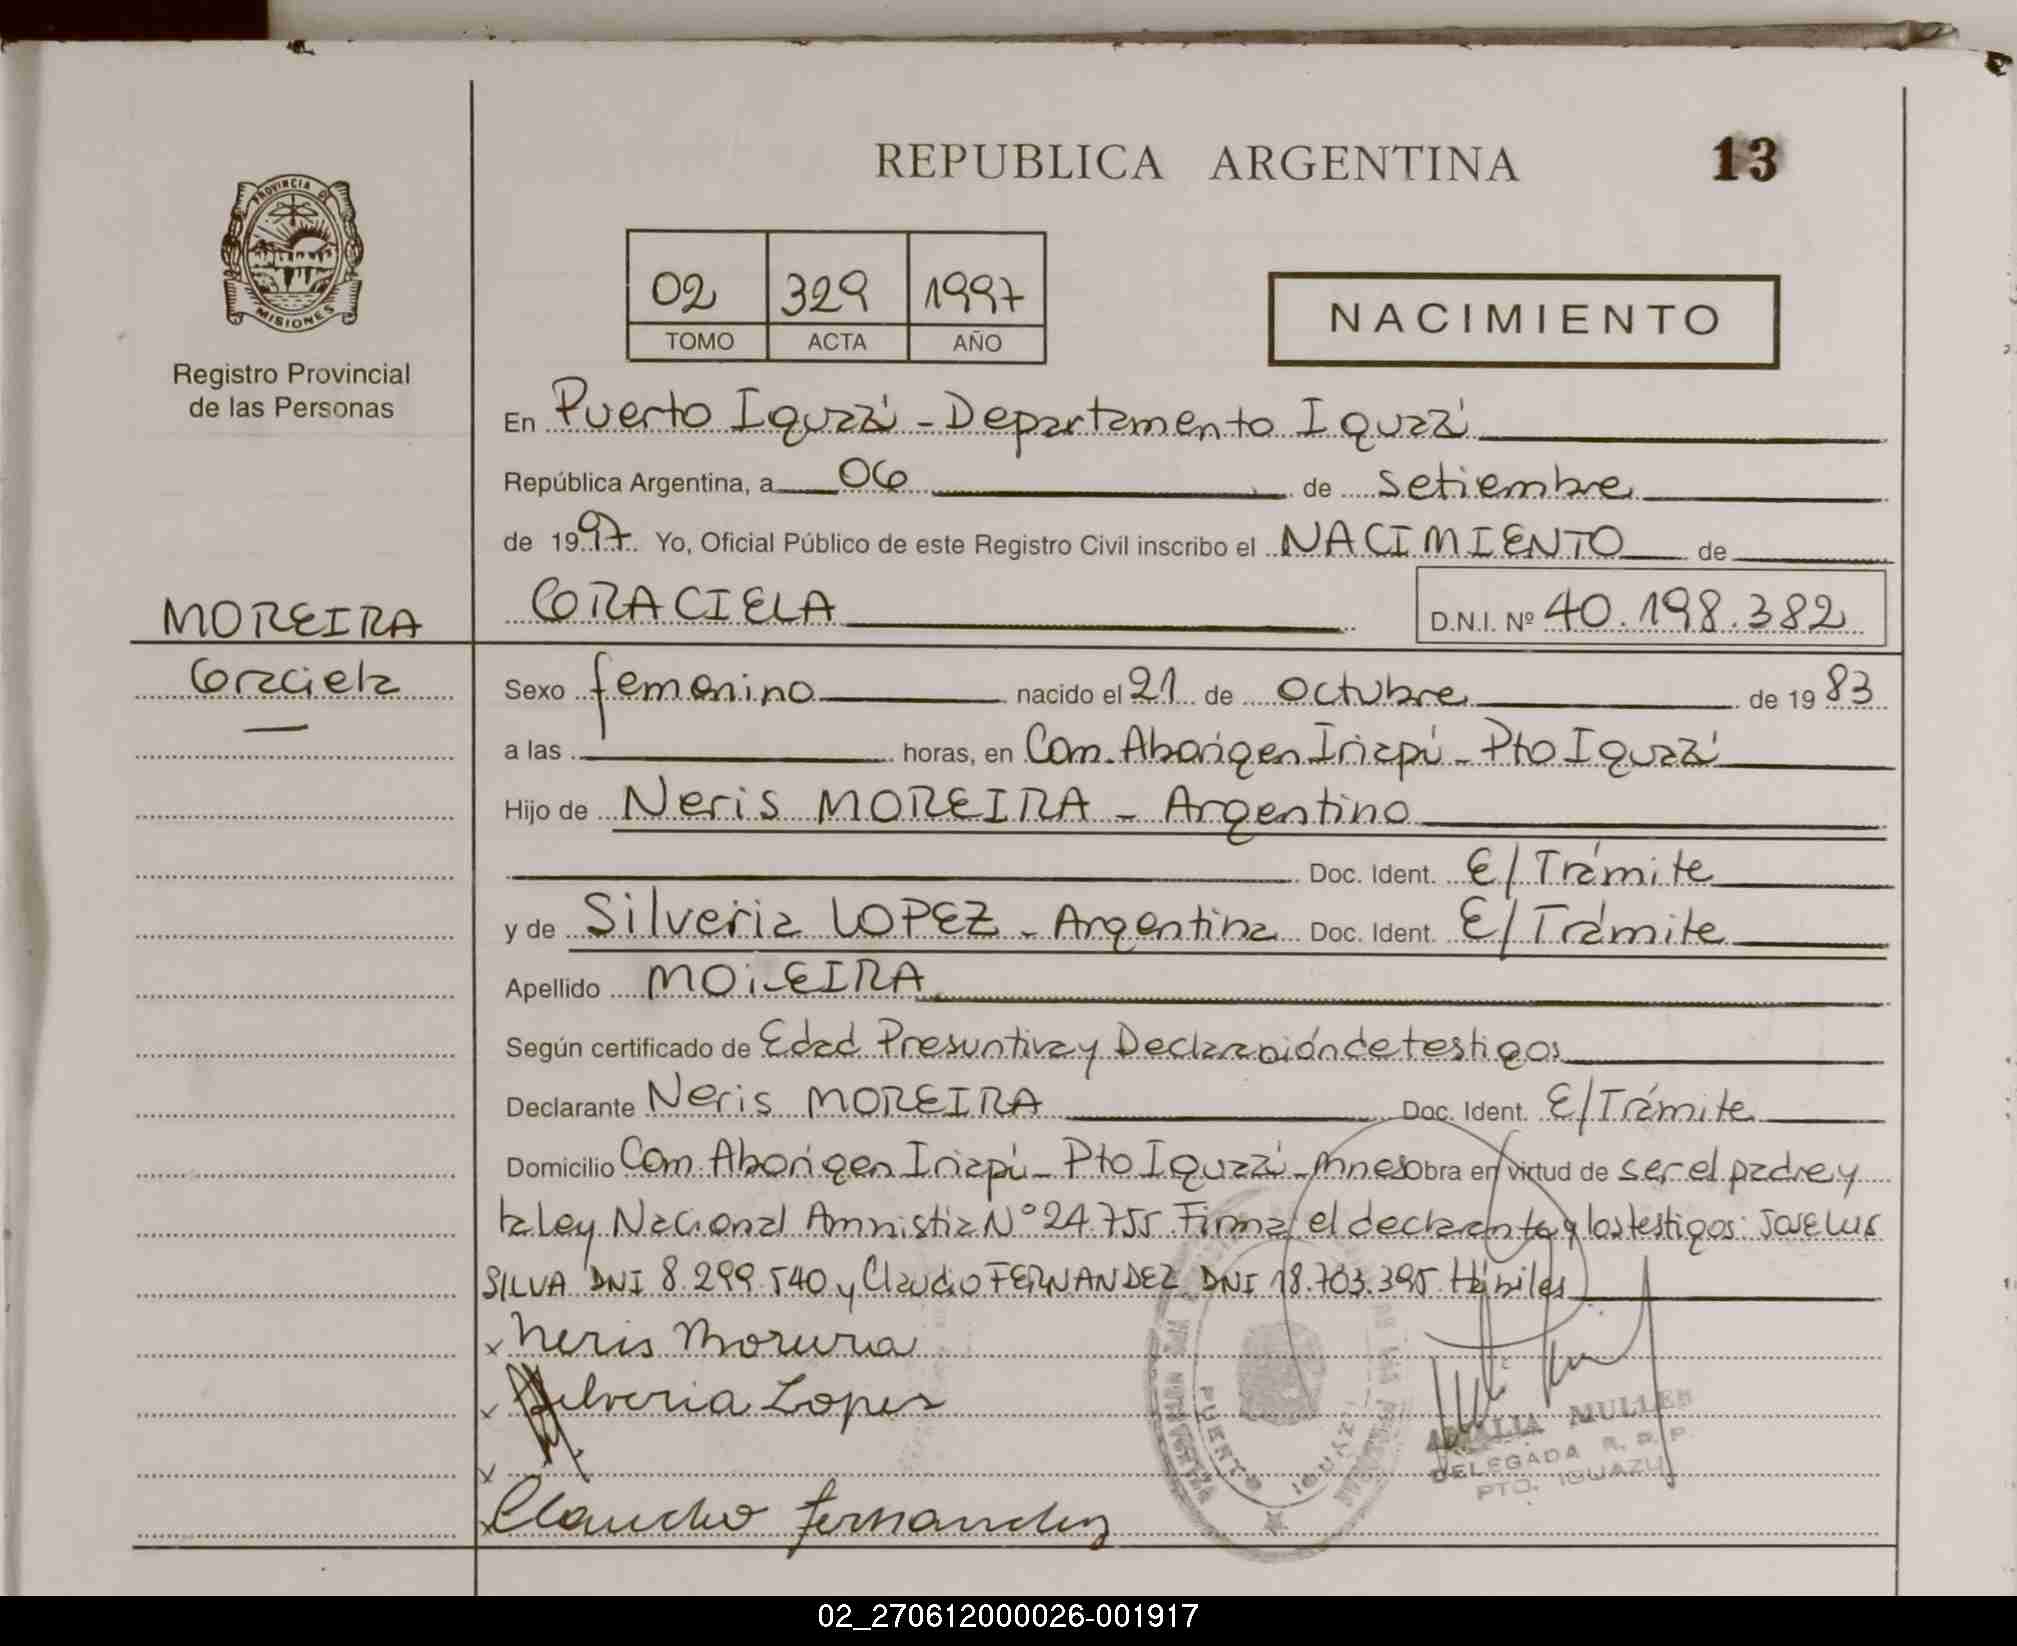 REPUBLICA ARGENTINA
13
PROVINCIA DE
MISIONES
Registro Provincial
de las Personas
02 329 1997
TOMO ACTA AÑO
NACIMIENTO
En Puerto Iguazú - Departamento Iguazú
República Argentina, a 06 de setiembre
de 1997. Yo, Oficial Público de este Registro Civil inscribo el NACIMIENTO de
GRACIELA
D.N.I. Nº 40.198.382
MOREIRA
Graciela
Sexo femenino nacido el 21 de octubre de 1983
a las horas, en Com. Aborigen Iriapú - Pto Iguazú
Hijo de Neris MOREIRA - Argentino
Doc. Ident. E/Trámite
y de Silveria LOPEZ - Argentina Doc. Ident. E/Trámite
Apellido MOREIRA
Según certificado de Edad Presuntiva y Declaración de testigos
Declarante Neris MOREIRA Doc. Ident. E/Trámite
Domicilio Com. Aborigen Iriapú - Pto Iguazú - Mnes Obra en virtud de ser el padre y
la Ley Nacional Amnistia Nº 24.755. Firma el declarante y los testigos: JOSE LUIS
SILVA DNI 8.299.540 y Claudio FERNANDEZ DNI 18.703.395 Hábiles
x Neris Moreira
x Silveria Lopes
x
x Claudio Fernandez
PUERTO IGUAZU
AMALIA MULLER
DELEGADA R. P. P.
PTO. IGUAZU
02_270612000026-001917